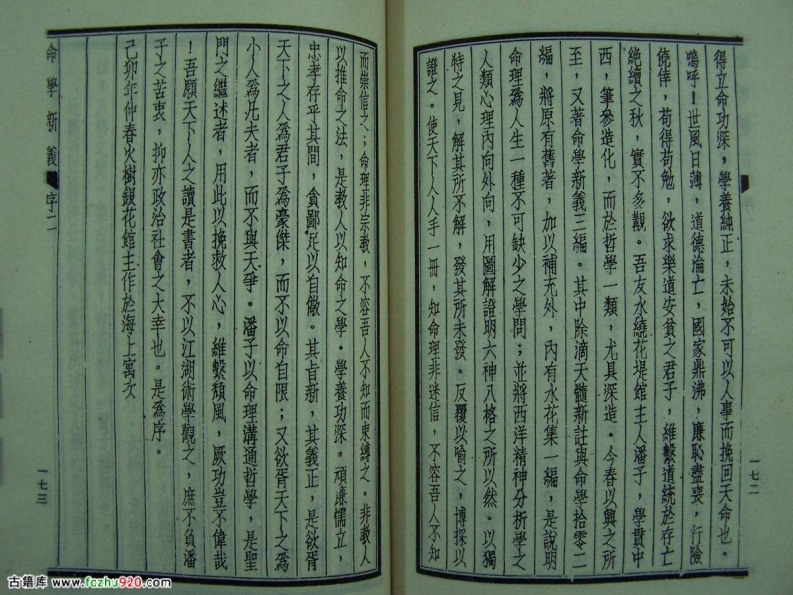 得立命功深，學養純正，未始不可以人事而挽回天命也。
嗚呼！世風日薄，道德淪亡，國家鼎沸，廉恥盡喪，行險
僥倖，苟得苟勉，欲求樂道安貧之君子，維繫道統於存亡
絕續之秋，實不多覯。吾友水繞花堤館主人潘子，學貫中
西，筆參造化，而於哲學一類，尤具深造。今春以興之所
至，又著命學新義三編。其中除滴天髓新註與命學拾零二
編，將原有舊著，加以補充外，內有水花集一編，是說明
命理爲人生一種不可缺少之學問；並將西洋精神分析學之
人類心理內向外向，用圖解證明六神八格之所以然。以獨
特之見，解其所不解，發其所未發。反覆以喻之，博採以
證之。使天下人人手一冊，知命理非迷信，不容吾人不知
一七二
而崇信之；命理非宗教，不容吾人不知而束縛之。非教人
以推命之法，是教人以知命之學。學養功深，頑廉懦立，
忠孝存乎其間，貪鄙足以自儆。其旨新，其義正，是欲胥
天下之人爲君子爲豪傑，而不以命自限；又欲胥天下之爲
小人爲凡夫者，而不與天爭。潘子以命理溝通哲學，是聖
門之繼述者，用此以挽救人心，維繫頹風，厥功豈不偉哉
！吾願天下人之讀是書者，不以江湖術學觀之，庶不負潘
子之苦衷，抑亦政治社會之大幸也。是爲序。
己卯年仲春火樹銀花館主作於海上寓次
命學新義
字二
一七三
古籍库 www.fozhu920.com